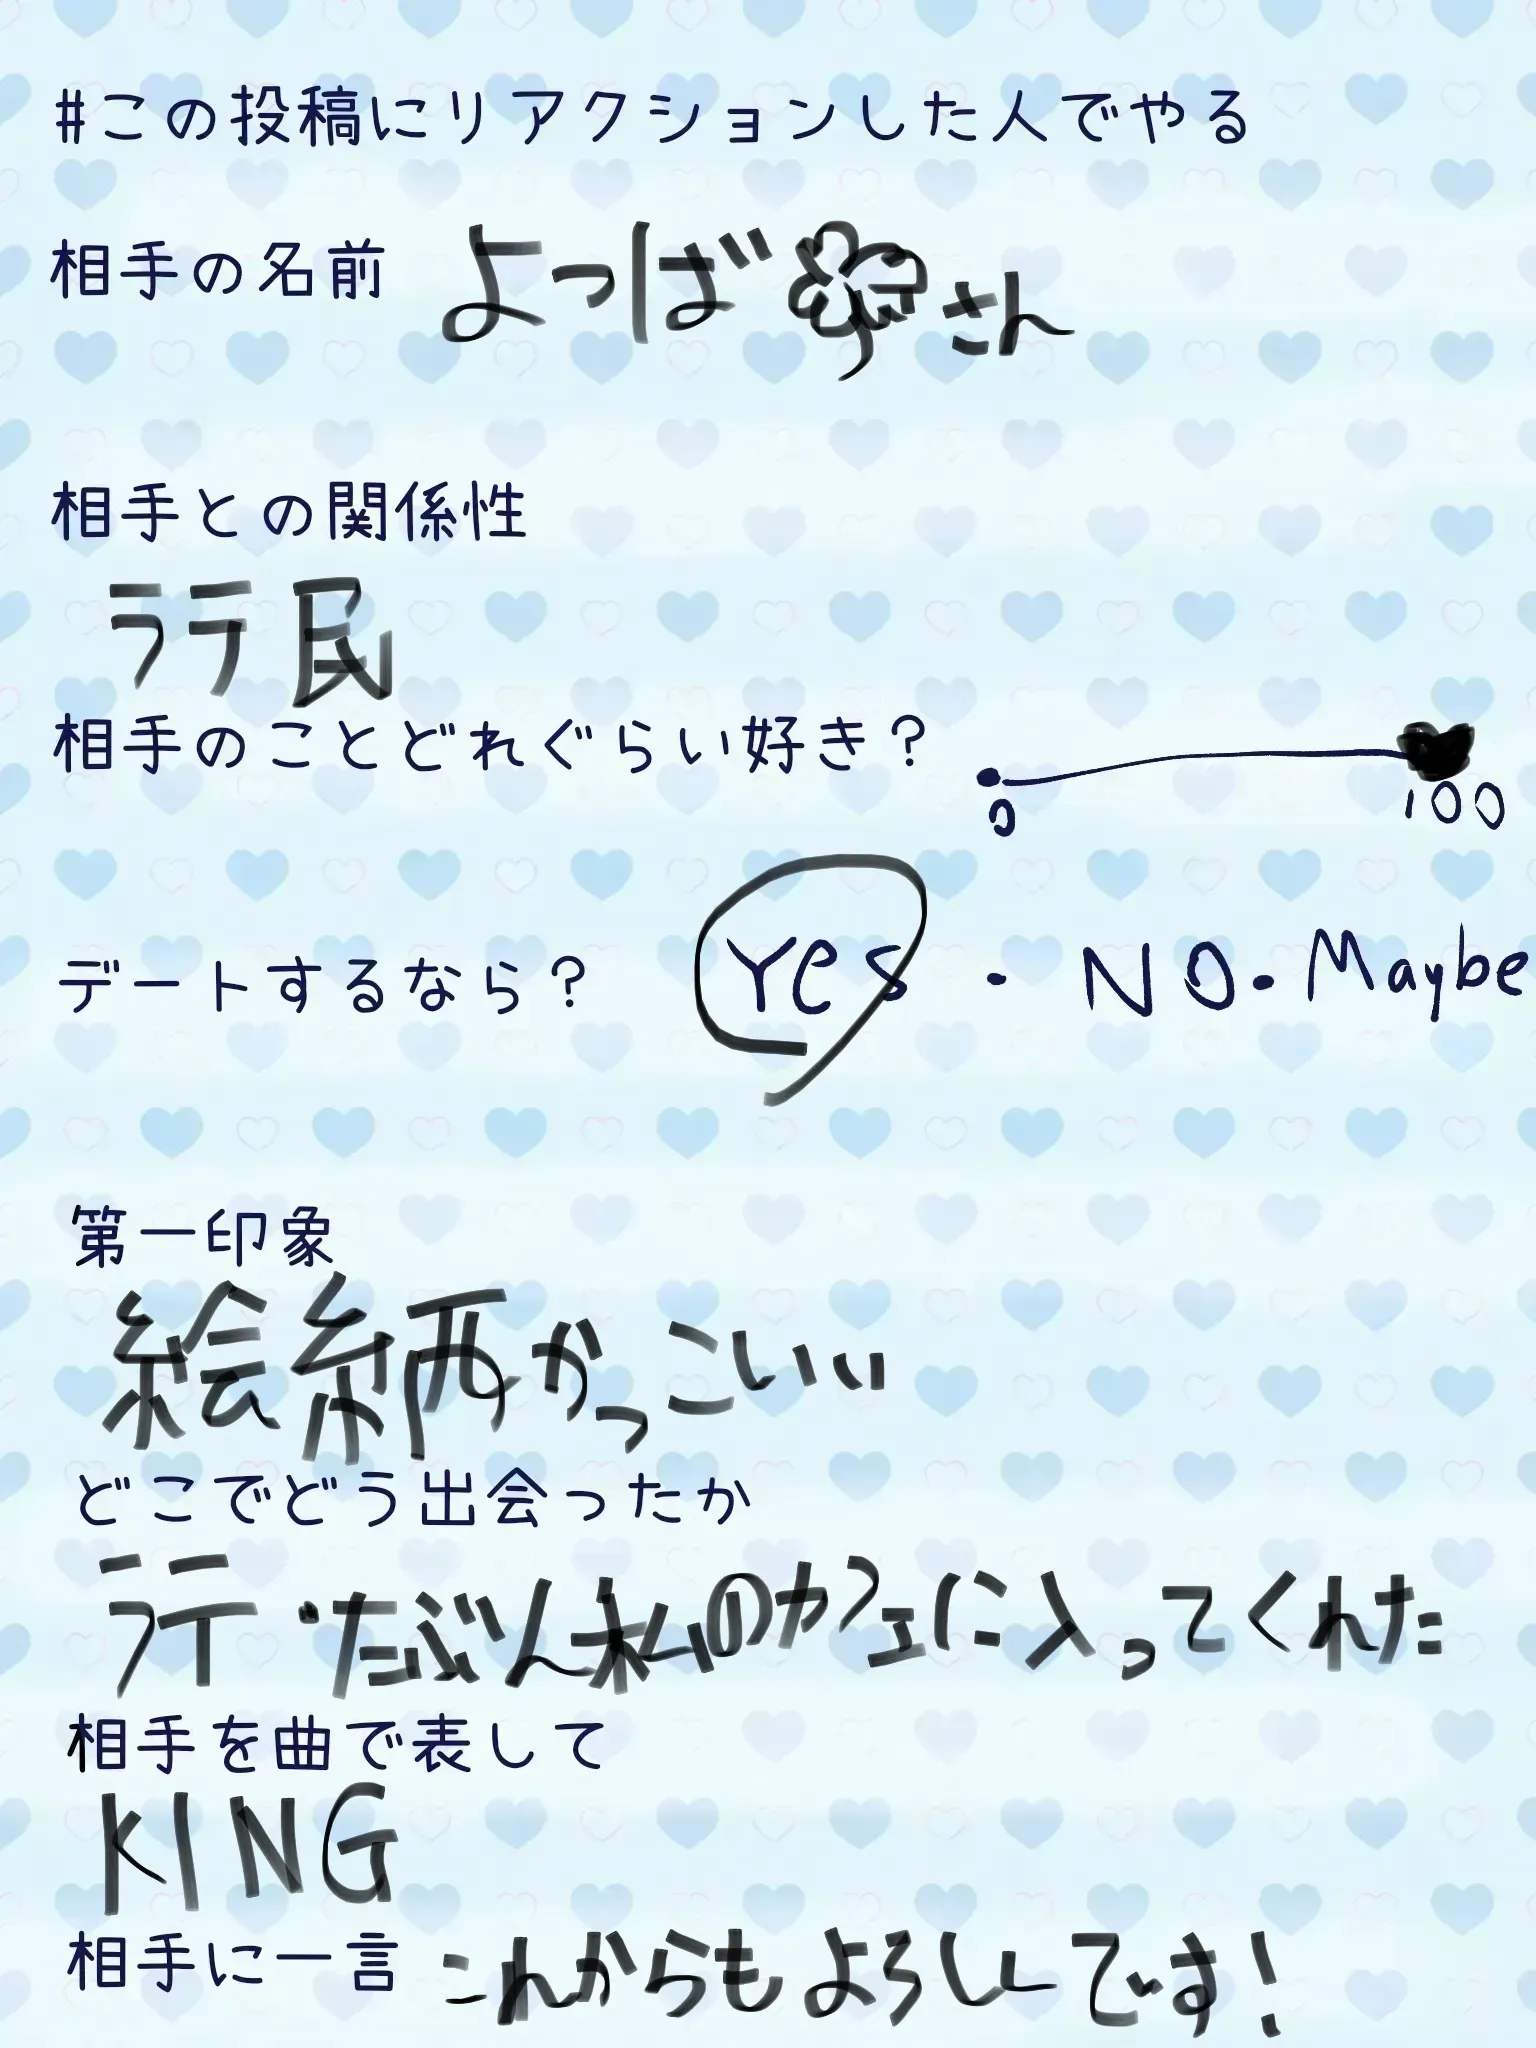 #この投稿にリアクションした人でやる
相手の名前 よつば🍀さん
相手との関係性
ラテ民
相手のことどれぐらい好き?
0 100
デートするなら? Yes・NO・Maybe
第一印象
絵柄かっこいい
どこでどう出会ったか
ラテ・たぶん私のカフェに入ってくれた
相手を曲で表して
KING
相手に一言 これからもよろしくです!